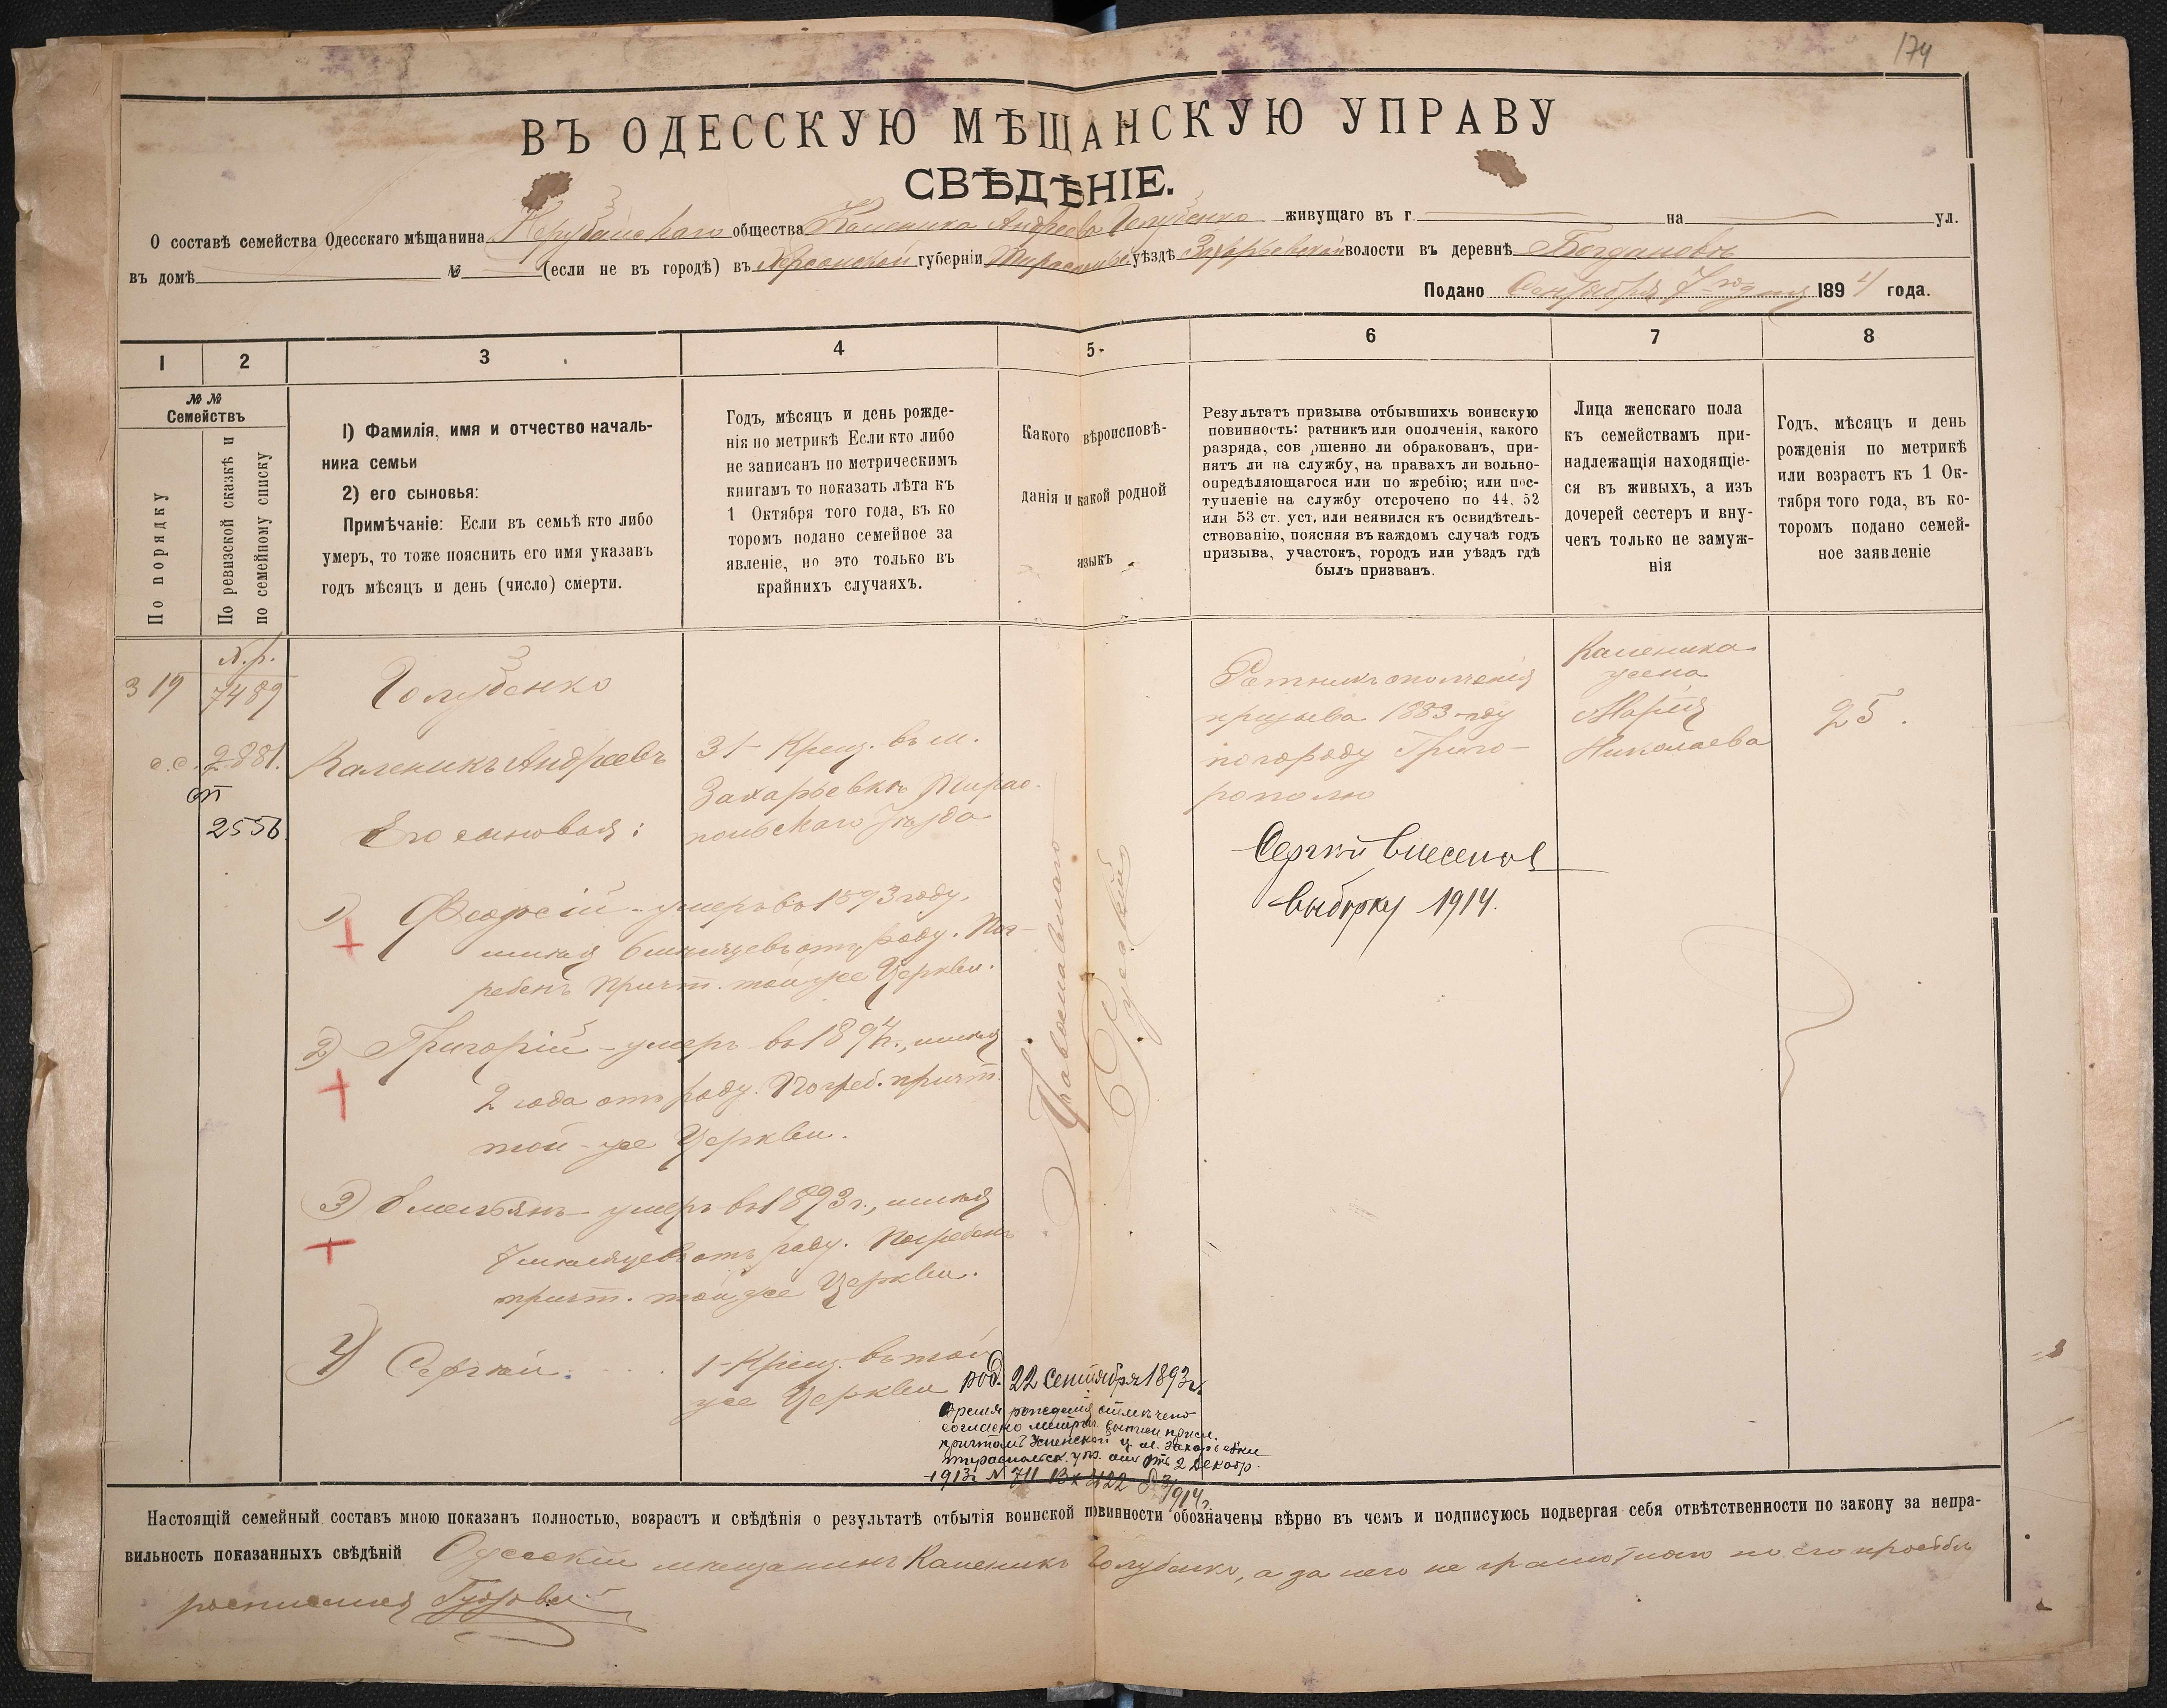 174
ВЪ ОДЕССКУЮ МѢЩАНСКУЮ УПРАВУ
СВѢДѢНІЕ.
О составѣ семейства Одесскаго мѣщанина Нерубайскаго общества Каленика Андреева Голубенко живущаго въ г. на ул.
въ домѣ № (если не въ городѣ) въ Херсонской губерніи уѣздѣ Захарьевской волости въ деревнѣ Богдановкѣ
Подано Сентября 7 1894 года.
1 2 3 4 5 6 7 8
№ №
Семействъ
По порядку
По ревизской сказкѣ и
по семейному списку
1) Фамилія, имя и отчество началь-
ника семьи
2) его сыновья:
Примѣчаніе: Если въ семьѣ кто либо
умеръ, то тоже пояснить его имя указавъ
годъ мѣсяцъ и день (число) смерти.
Годъ, мѣсяцъ и день рожде-
нія по метрикѣ Если кто либо
не записанъ по метрическимъ
книгамъ то показать лѣта къ
1 Октября того года, въ ко
торомъ подано семейное за
явленіе, но это только въ
крайнихъ случаяхъ.
Какого вѣроисповѣ-
данія и какой родной
языкъ
Результатъ призыва отбывшихъ воинскую
повинность: ратникъ или ополченія, какого
разряда, сов ршенно ли обракованъ, при-
нятъ ли на службу, на правахъ ли вольно-
опредѣляющагося или по жребію; или пос-
тупленіе на службу отсрочено по 44. 52
или 53 ст. уст. или неявился къ освидѣтель-
ствованію, поясняя въ каждомъ случаѣ годъ
призыва, участокъ, городъ или уѣздъ гдѣ
былъ призванъ.
Лица женскаго пола
къ семействамъ при-
надлежащія находящіе-
ся въ живыхъ, а изъ
дочерей сестеръ и вну-
чекъ только не замуж-
нія
Годъ, мѣсяцъ и день
рожденія по метрикѣ
или возрастъ къ 1 Ок-
тября того года, въ ко-
торомъ подано семей-
ное заявленіе
319
Н.р.
7489
с.с. 2881.
от
2556
Голубенко
Каленикъ Андреевъ
Его сыновья:
31 - Крещ. въ м.
Захарьевкѣ Тирас-
польскаго Уѣзда
1) умеръ въ 1893 году,
имѣя 6 мѣсяцевъ отъ роду. Пог-
ребенъ причт. той же Церкви.
2) Григорій - умеръ въ 1894 г., имѣя
2 года отъ роду. Погреб. причт.
той-же Церкви.
3) Емельянъ - умеръ въ 1893 г., имѣя
7 мѣсяцевъ отъ роду. Погребенъ
причт. той же Церкви.
4) Сергѣй
1 - Крещ. въ той
же Церкви
род. 22 Сентября 1893 г.
Время рожденія отмѣчено
согласно метрич. выписи присл.
причтомъ Успенской ц. м. Захарьевки
Тираспольск. у. отъ 2 Декабр.
1913 г. № 711 Вх 4122
1914 г.
Православнаго
Русскій
Ратникъ ополченія
призыва 1883 году
по городу Григо-
рополю
Сергѣй внесенъ
выборку 1914.
Каленика
жена
Марія
Николаева
25.
Настоящій семейный составъ мною показанъ полностью, возрастъ и свѣдѣнія о результатѣ отбытія воинской повинности обозначены вѣрно въ чемъ и подписуюсь подвергая себя отвѣтственности по закону за непра-
вильность показанныхъ свѣдѣній Одесскій мѣщанинъ Каленикъ Голубенко, а за него не грамотнаго по его просьбѣ
росписался